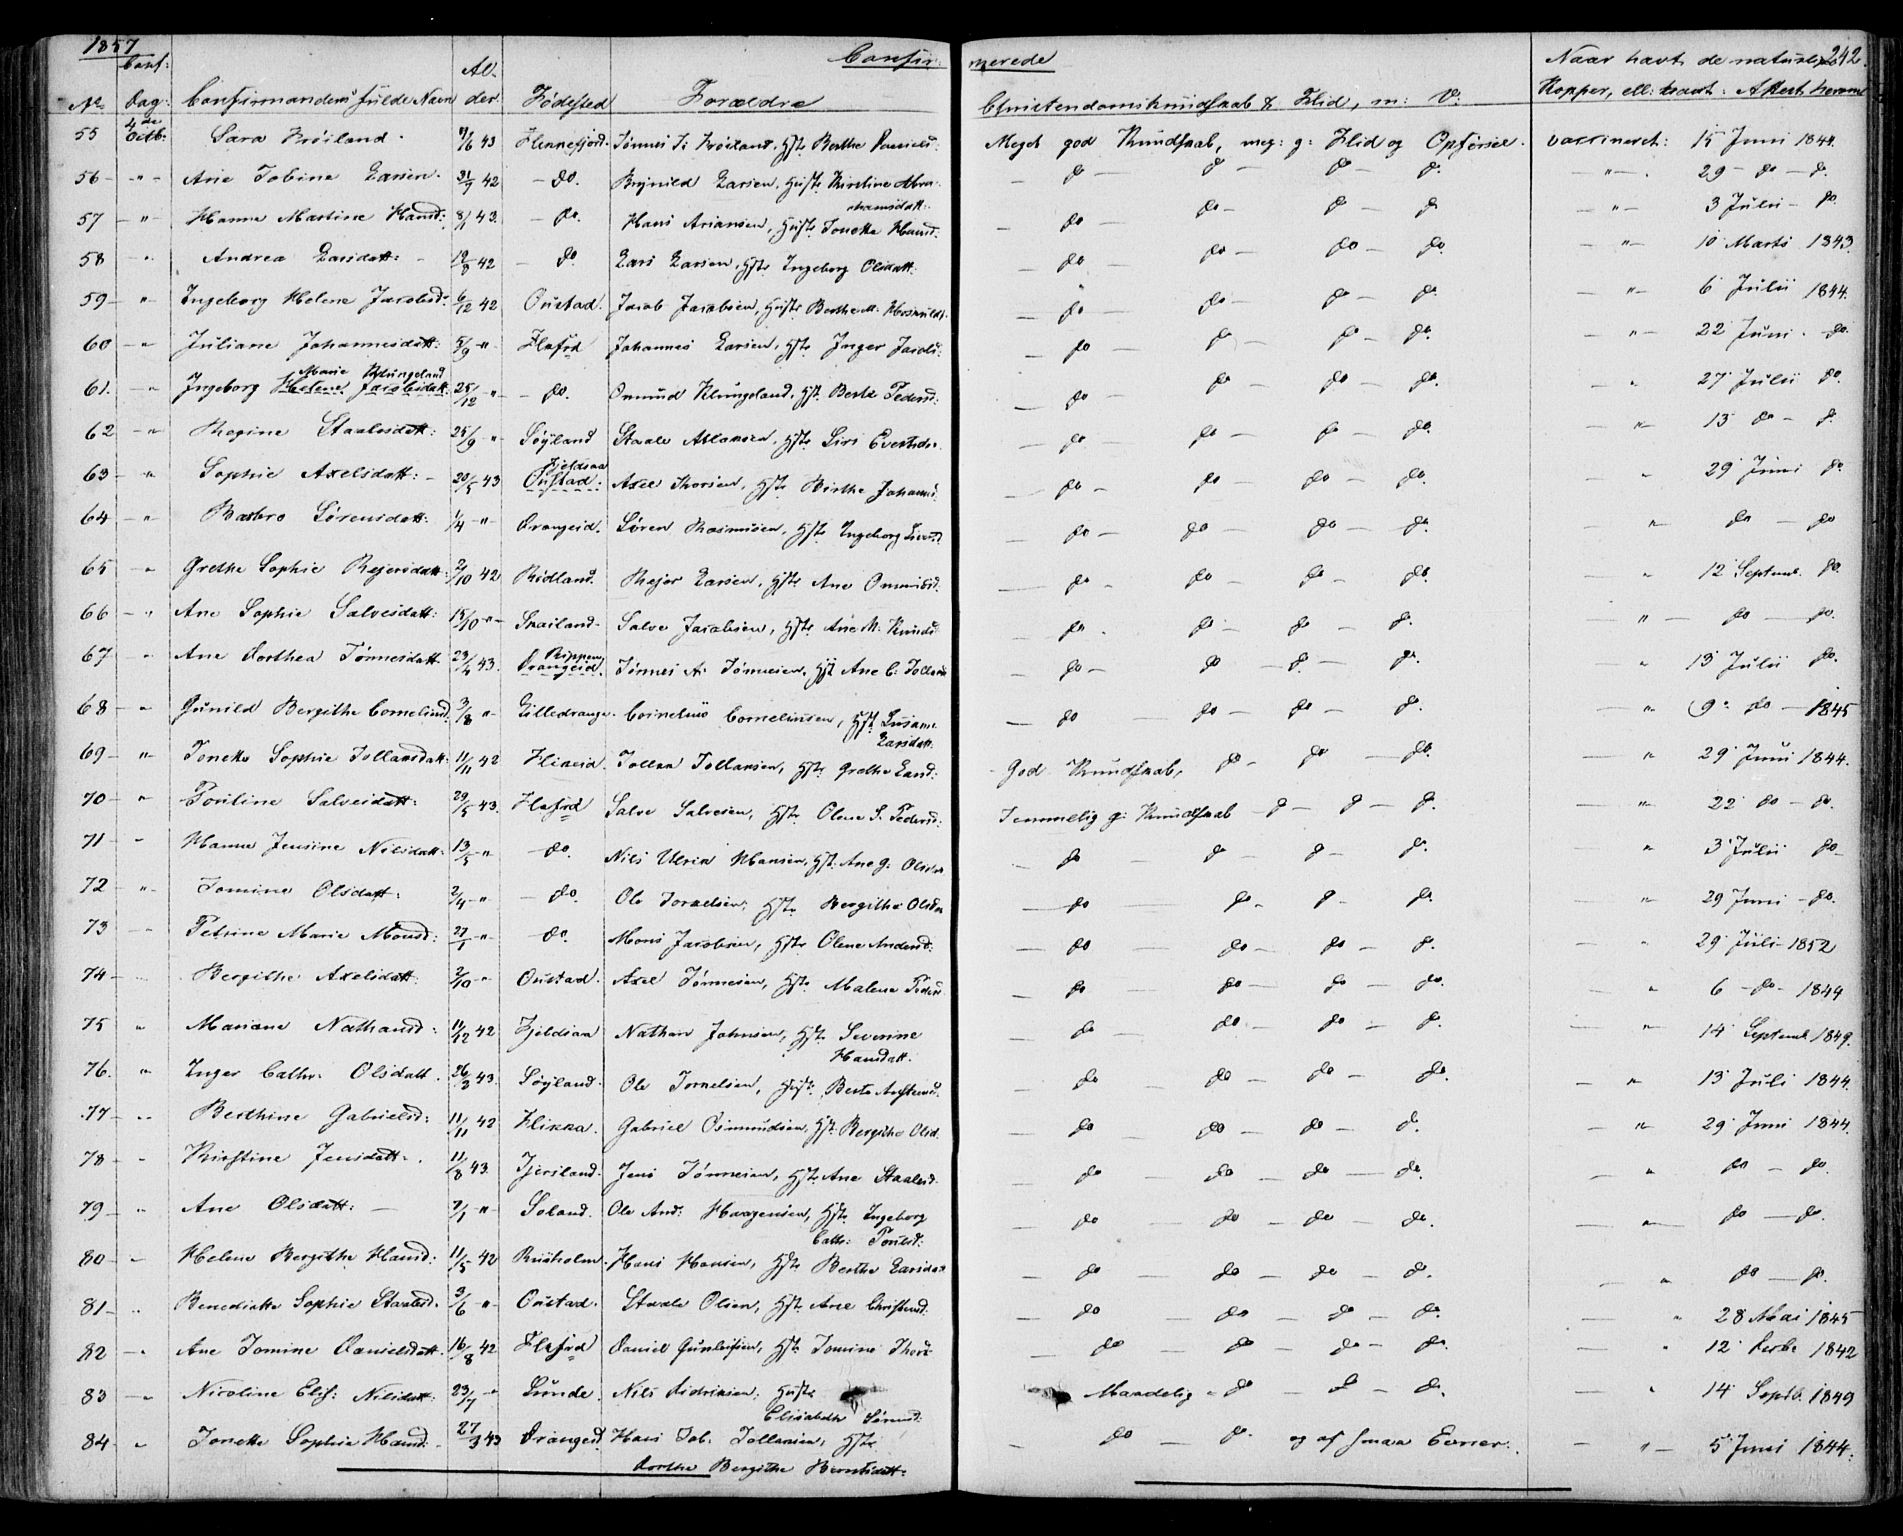 1857 Confirmerede 242.
No Conf: Dag: Confirmandens fulde Navn Alder Fødested Forældre Christendomskundskab & Flid, m: V: Naar havt de naturlige Kopper, ell: vacc: Attest herom
55 4de Octb: Sara Frøiland 43 Flekkefjord Tønnes Frøiland, Hstr Berthe Daniels: Meget god Kundskab, meg: g: Flid og Opførsel. vaccineret: 15 Juni 1844.
56 - " - Ane Tobine Larsen 42 - do. Brynild Larsen, Hustr Kirstine Abrahamsdatt: - do - do - do - do. - " - 29 - do - do.
57 - " - Hanne Martine Hansd: 8/1 43. - do. Hans Ariansen, Hustr Tonette Hansd. do - do - do - do - " - 3 Julii - do.
58 - " Andrea Larsdatt: - 42 - do. Lars Larsen, Hstr Ingeborg Olsdatt: - do - do - do - do - " - 10 Marts 1843.
59 - " Ingeborg Helene Jacobsd: 6/12 42 Oustad. Jacob Jacobsen, Hustr Berthe M. - do - do - do - do. - " - 6 Julii 1844.
60 - " Juliane Johannesdatt: 5/9 " Flefrd Johannes Larsen, Hstr Inger Jacobs: - do - do - do - do. - " - 22 Juni - do.
61. - " Ingeborg Helene Jacobsdatt: Marie Klungeland 25/12 - " - - do. Omund Klungeland, Hst. Berte Pedersd: - do - do - do - do. - " 27 Julii do.
62 - " Regine Staalesdatt: 25/9 - " Søyland Staale Atlaksen, Hstr Siri - do - do - do - do. - " 13 do - do.
63 - " Sophie Axelsdatt: - 20/5 43 Oustad. Fjeldsaa Axel Thorsen, Hstr Birthe Johannsd - do - do - do - do. 29 Juni do.
64 - " Barbro Sørensdatt: 1/4 - " Drangeid. Søren Rasmusen, Hstr Ingeborg - do - do - do - do. - " do - do
65 - " Grethe Sophie Rejersdatt: 2/10 42 Rødland. Rejer Larsen, Hstr Ane Omundsd. - do - do - do - do. - " 12 Septemb. do.
66 - " Ane Sophie Salvesdatt: 15/10 - " - Skailand. Salve Jacobsen, Hstr Ane M. Knuds: - do - do - do - do. - " - do - do.
67 - " Ane Dorthea Tønnesdatt. 43. Drangeid. Tønnes A. Tønnesen, Hst Ane C. - do - do - do - do. " 13 Julii do.
68 - " Gunild Bergithe Corneliusd. 3/8 " Lilledrange. Cornelius Corneliusen, Hst. Susanne Larsdatt. - do - do - do - do. - " 9 do - 1845
69 - " Tonette Sophie Tollaksdatt: 11/11 42 Flikeid. Tollak Tollaksen, Hstr Grethe Larsd: God Kundskab, do - do - do. - " 29 Juni 1844.
70 - " Pouline Salvesdatt: 29/5 43. Flefrd Salve Salvesen, Hstr Olene S. Pedersd: Temmelig g: Kundskab - do - do - do. - " 22 do - do.
71 - " Hanne Jensine Nilsdatt: 13/5 - " - do. Nils Ulrik Hansen, Hst. Ane G. Olsdatt - do - do - do - do. - " 3 Julii do -
72 - " - Tomine Olsdatt: 2/4 - " - do. Ole Tornelsen, Hstr Bergithe Olsda - do - do - do - do. " 29 Juni - do.
73 - Petrine Marie Monsd: 27/1 - " - do. Mons Jacobsen, Hstr Olene Andersd: - do - do - do - do. " 29 Juli 1852
74 - Bergithe Axelsdatt: 2/10 - " Oustad. Axel Tønnesen, Hstr Malene Peders - do - do - do - do. " 6 - do - 1844
75 " Mariane Nathansd: 11/12 42 Fjeldsaa Nathan Johnsen, Hstr Severine Hansdatt: - do - do - do - do. - " 14 Septemb. 1849.
76. " Inger Cathr. Olsdatt. 26/3 43. Søyland. Ole Tornelsen, Hustr Berte - do - do - do - do. - " 13 Juli 1844.
77 - " Berthine Gabrielsd: 11/11 42 Flikka. Gabriel Osmundsen, Hst. Bergithe Olsd. - do - do - do - do. - " 29 Juni 1844.
78 - " Kirstine Jensdatt. 11/8 43. Tjersland. Jens Tønnesen, Hstr Ane Staalesd. - do - do - do - do. " do - do.
79 - " Ane Olsdatt: - - " Soland. Ole And: Haagensen, Hstr Ingeborg Cathr: - do - do - do - do. " do - do.
80 - " Helene Bergithe Hansd: 11/5 42 Hans Hansen, Hstr Berthe Larsdatt - do - do - do - do. " do - do.
81 - " Benedikte Sophie Staalesd. 3/6 - " Oustad. Staale Olsen, Hstr Ane Christensd: - do - do - do - do. " 28 Mai 1845
82 - " Ane Tomine Danielsdatt. 16/8 42 Flefrd Daniel Gundersen, Hstr Tomine Thors - do - do - do - do. " 12 Decbr 1842
83 - " Nicoline Elis: Nilsdatt: 23/7 - " Lunde. Nils Didriksen, Hustr Elisabeth Sørensd: - Maadelig - do - do - do. - " 14 Septb. 1849
84 - " Tonette Sophie Hansd. 27/3 43 Drangeid. Hans Tob. Tollaksen, Hstr Dorthe Bergithe Berntsdatt: - do - do - og af smaa Evner. - " - 5 Juni 1844.